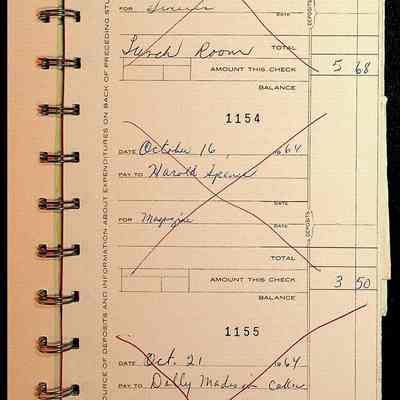 FOR
DATE
Lunch Room TOTAL
AMOUNT THIS CHECK 5 68
BALANCE
1154
DATE October 16, 1964
PAY TO Harold Spencer
DATE
FOR Magazine
TOTAL
AMOUNT THIS CHECK 3 50
BALANCE
1155
DATE Oct. 21 1964
PAY TO Dolly Madison
DEPOSITS
DEPOSITS
SOURCE OF DEPOSITS AND INFORMATION ABOUT EXPENDITURES ON BACK OF PRECEDING STUB